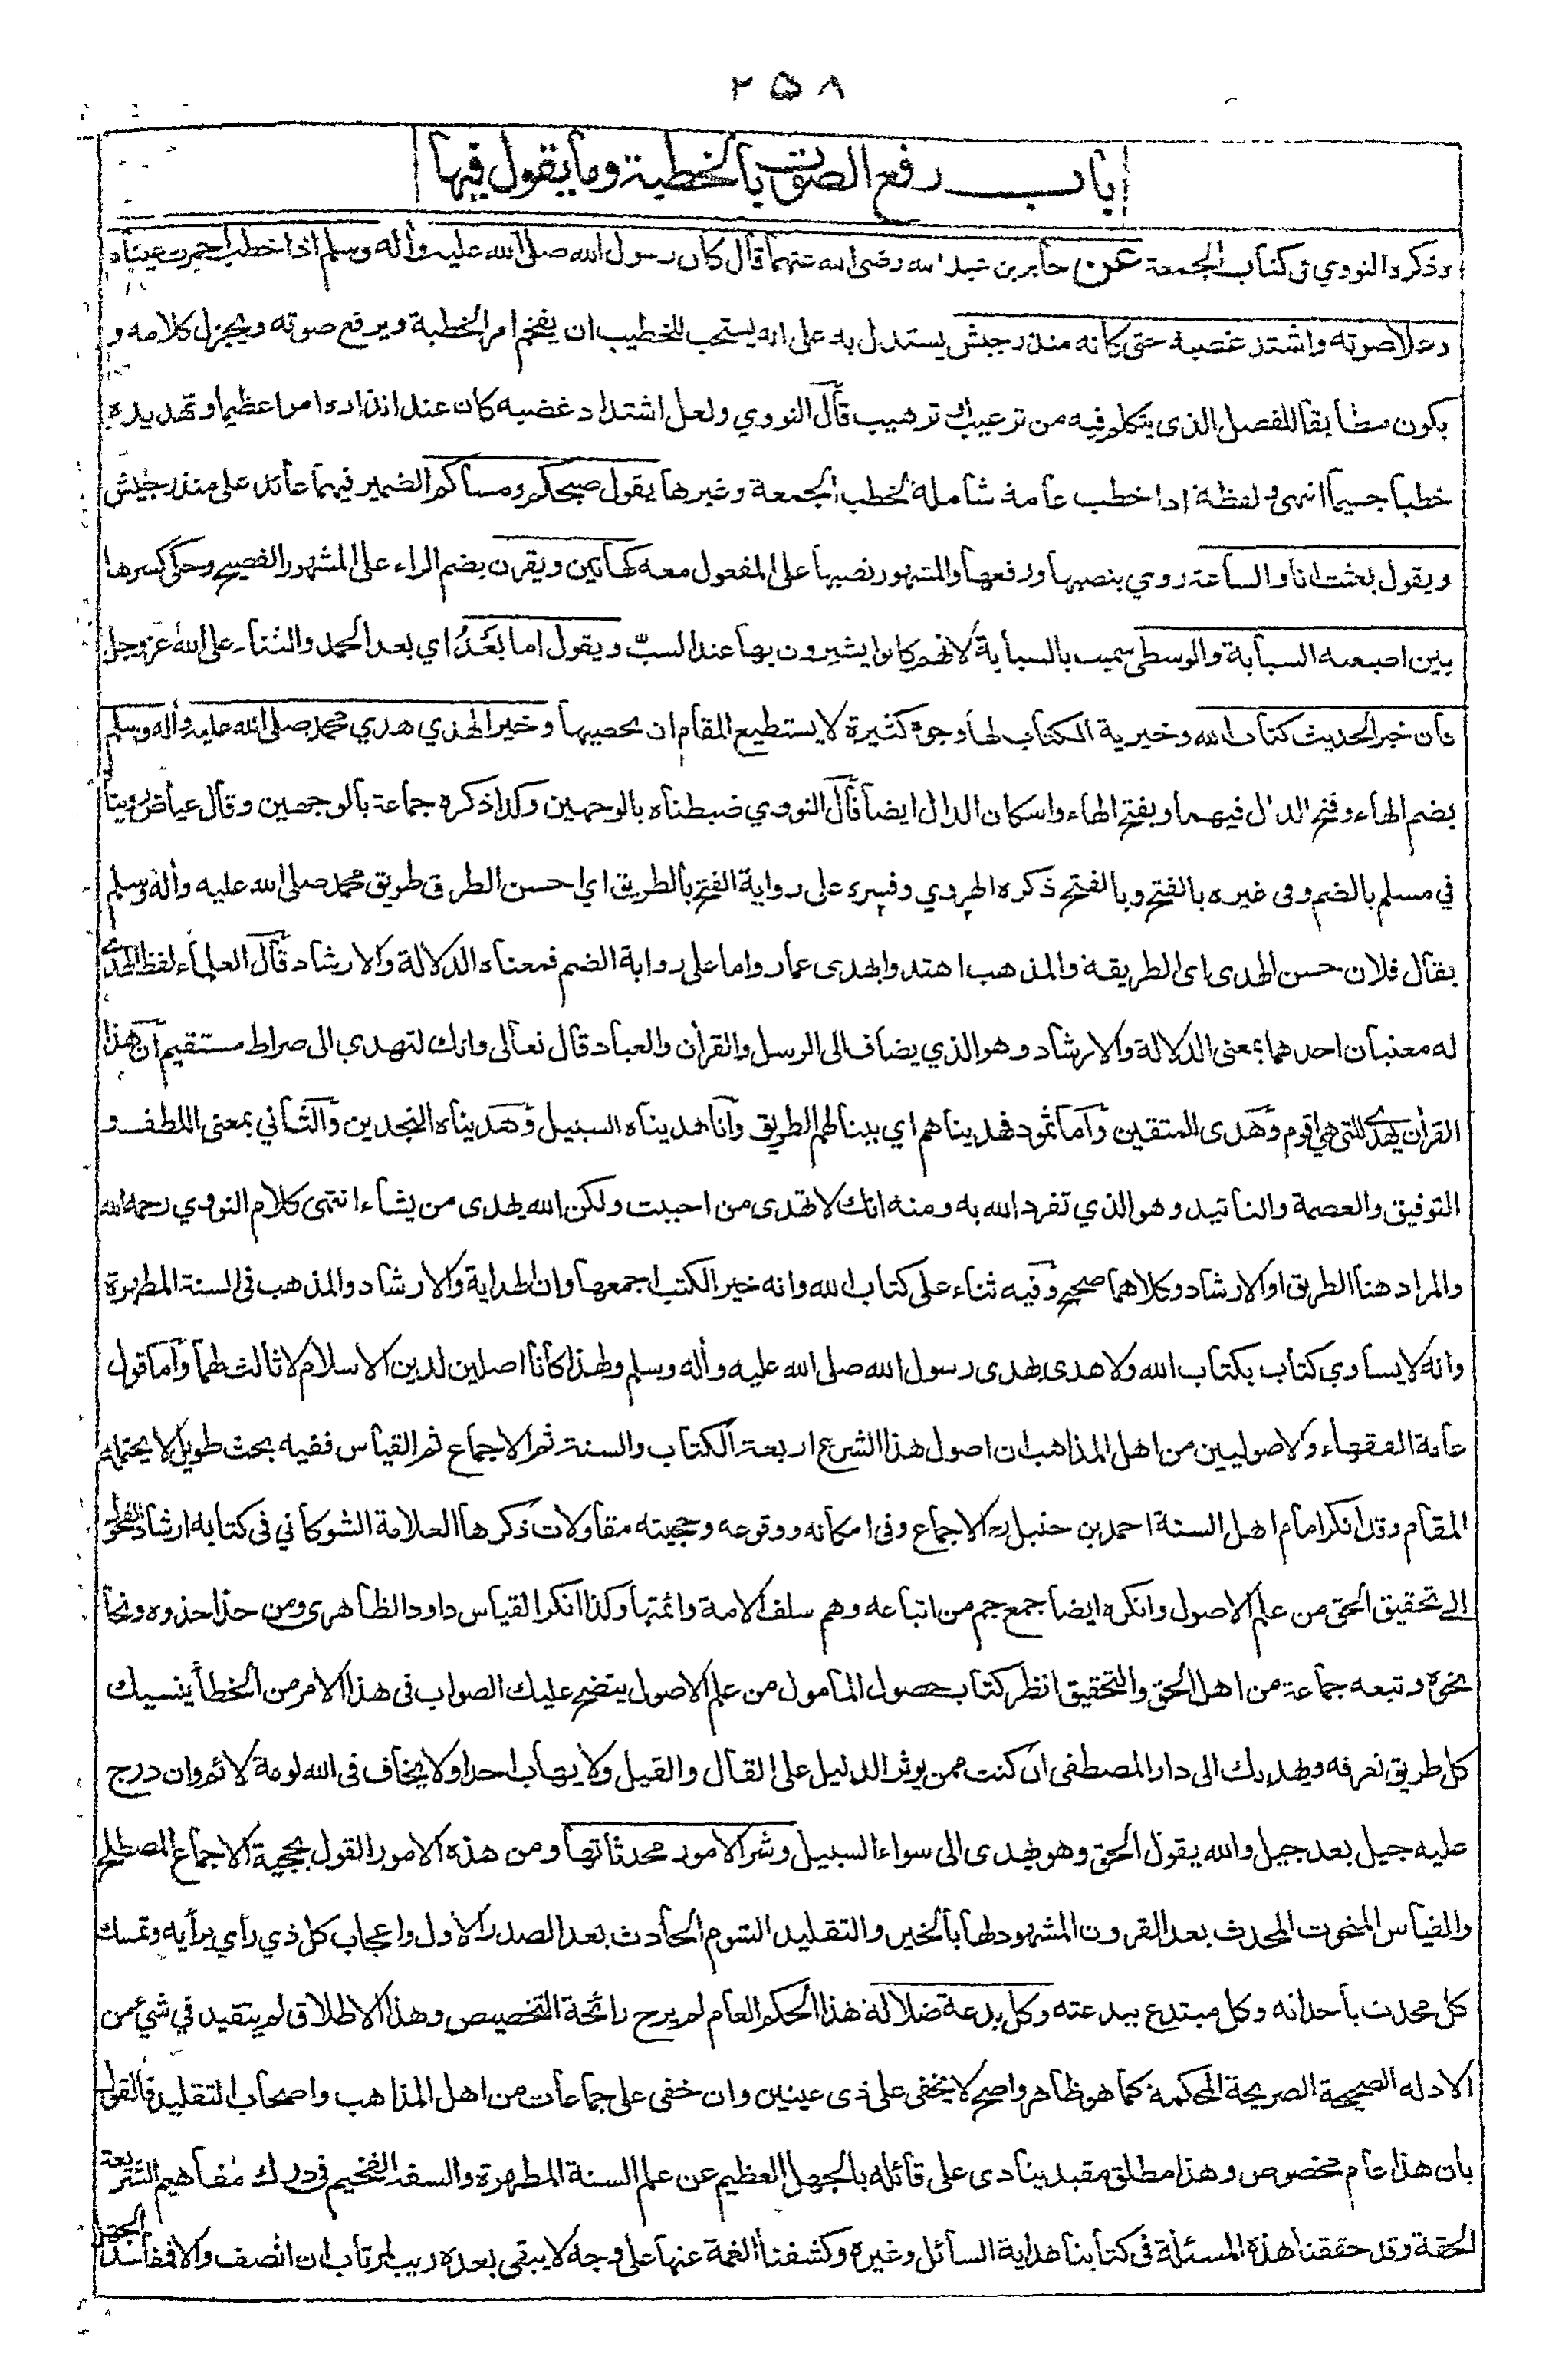 ٢٥٨
باب رفع الصوت بالخطبة وما يقول فيها
وذكره النووي في كتاب الجمعة عن جابر بن عبد الله رضي الله عنهما قال كان رسول الله صلى الله عليه وأله وسلم اذا خطب احمرت عيناه
وعلا صوته واشتد غضبه حتى كانه منذر جيش يستدل به على انه يستحب للخطيب ان يفخم امر الخطبة ويرفع صوته ويجزل كلامه و
يكون مطابقا للفصل الذي يتكلم فيه من ترغيب او ترهيب قال النووي ولعل اشتداد غضبه كان عند انذاره امرا عظيما وتهديده
خطبا جسيما انتهى ولفظة اذا خطب عامة شاملة لخطب الجمعة وغيرها يقول صبحكم ومساكم الضمير فيهما عائد على منذر جيش
ويقول بعثت انا والساعة روي بنصبها ورفعها والمشهور نصبها على المفعول معه كهاتين ويقرن بضم الراء على المشهور الفصيح وحكي كسرها
بين اصبعيه السبابة والوسطى سميت بالسبابة لانهم كانوا يشيرون بها عند السبّ ويقول اما بَعْدُ اي بعد الحمد والثناء على الله عز وجل
فان خير الحديث كتاب الله وخيرية الكتاب لها وجوه كثيرة لا يستطيع المقام ان يحصيها وخير الهدي هدي محمد صلى الله عليه وأله وسلم
بضم الهاء وفتح الدال فيهما وبفتح الهاء واسكان الدال ايضا قال النووي ضبطناه بالوجهين وكذا ذكره جماعة بالوجهين وقال عياض رويناه
في مسلم بالضم وفي غيره بالفتح وبالفتح ذكره الهروي وفسره على رواية الفتح بالطريق اي احسن الطرق طريق محمد صلى الله عليه وأله وسلم
يقال فلان حسن الهدى اى الطريقة والمذهب اهتدوا بهدى عمار واما على رواية الضم فمعناه الدلالة والارشاد قال العلماء لفظ الهدى
له معنيان احدهما بمعنى الدلالة والارشاد وهو الذي يضاف الى الرسل والقرأن والعباد قال تعالى وانك لتهدي الى صراط مستقيم ان هذا
القرأن يهدى للتي هي اقوم وهدى للمتقين واما ثمود فهديناهم اي بينا لهم الطريق وانا هديناه السبيل وهديناه النجدين والثاني بمعنى اللطف و
التوفيق والعصمة والتأئيد وهو الذي تفرد الله به ومنه انك لا تهدى من احببت ولكن الله يهدى من يشاء انتهى كلام النووي رحمه الله
والمراد هنا الطريق او الارشاد وكلاهما صحيح وفيه ثناء على كتاب الله وانه خير الكتب اجمعها وان الهداية والارشاد والمذهب في السنة المطهرة
وانه لا يساوي كتاب بكتاب الله ولا هدى بهدى رسول الله صلى الله عليه وأله وسلم ولهذا كانا اصلين لدين الاسلام لا ثالث لهما واما قول
عامة الفقهاء والاصوليين من اهل المذاهب ان اصول هذا الشرع اربعة الكتاب والسنة ثم الاجماع ثم القياس ففيه بحث طويل لا يحتمله
المقام وقد انكر امام اهل السنة احمد بن حنبل رح الاجماع وفي امكانه ووقوعه وحجيته مقاولات ذكرها العلامة الشوكاني في كتابه ارشاد الفحول
الى تحقيق الحق من علم الاصول وانكره ايضا جمع جم من اتباعه وهم سلف الامة وائمتها وكذا انكر القياس داود الظاهري ومن حذا حذوه ونحا
نحوه وتبعه جماعة من اهل الحق والتحقيق انظر كتاب حصول المأمول من علم الاصول يتضح عليك الصواب في هذا الامر من الخطأ ينسيك
كل طريق تعرفه ويهديك الى دار المصطفى ان كنت ممن يوثر الدليل على القال والقيل ولا يهاب احدا ولا يخاف في الله لومة لائم وان درج
عليه جيل بعد جيل والله يقول الحق وهو يهدى الى سواء السبيل وشر الامور محدثاتها ومن هذه الامور القول بحجية الاجماع المصطلح
والقياس المنحوت المحدث بعد القرون المشهود لها بالخير والتقليد الشوم الحادث بعد الصدر الاول واعجاب كل ذي رأي برأيه وتمسك
كل محدث باحداثه وكل مبتدع ببدعته وكل بدعة ضلالة هذا الحكم العام لم يرح رائحة التخصيص وهذا الاطلاق لم يتقيد في شيء من
الادلة الصحيحة الصريحة المحكمة كما هو ظاهر واضح لا يخفى على ذى عينين وان خفى على جماعات من اهل المذاهب واصحاب التقليد فالقول
بان هذا عام مخصوص وهذا مطلق مقيد ينادى على قائله بالجهل العظيم عن علم السنة المطهرة والسفه الفخيم في درك مفاهيم الشريعة
الحقة وقد حققنا هذه المسئلة في كتابنا هداية السائل وغيره وكشفنا الغمة عنها على وجه لا يبقى بعده ريب لمرتاب ان انصف والا ففاسد